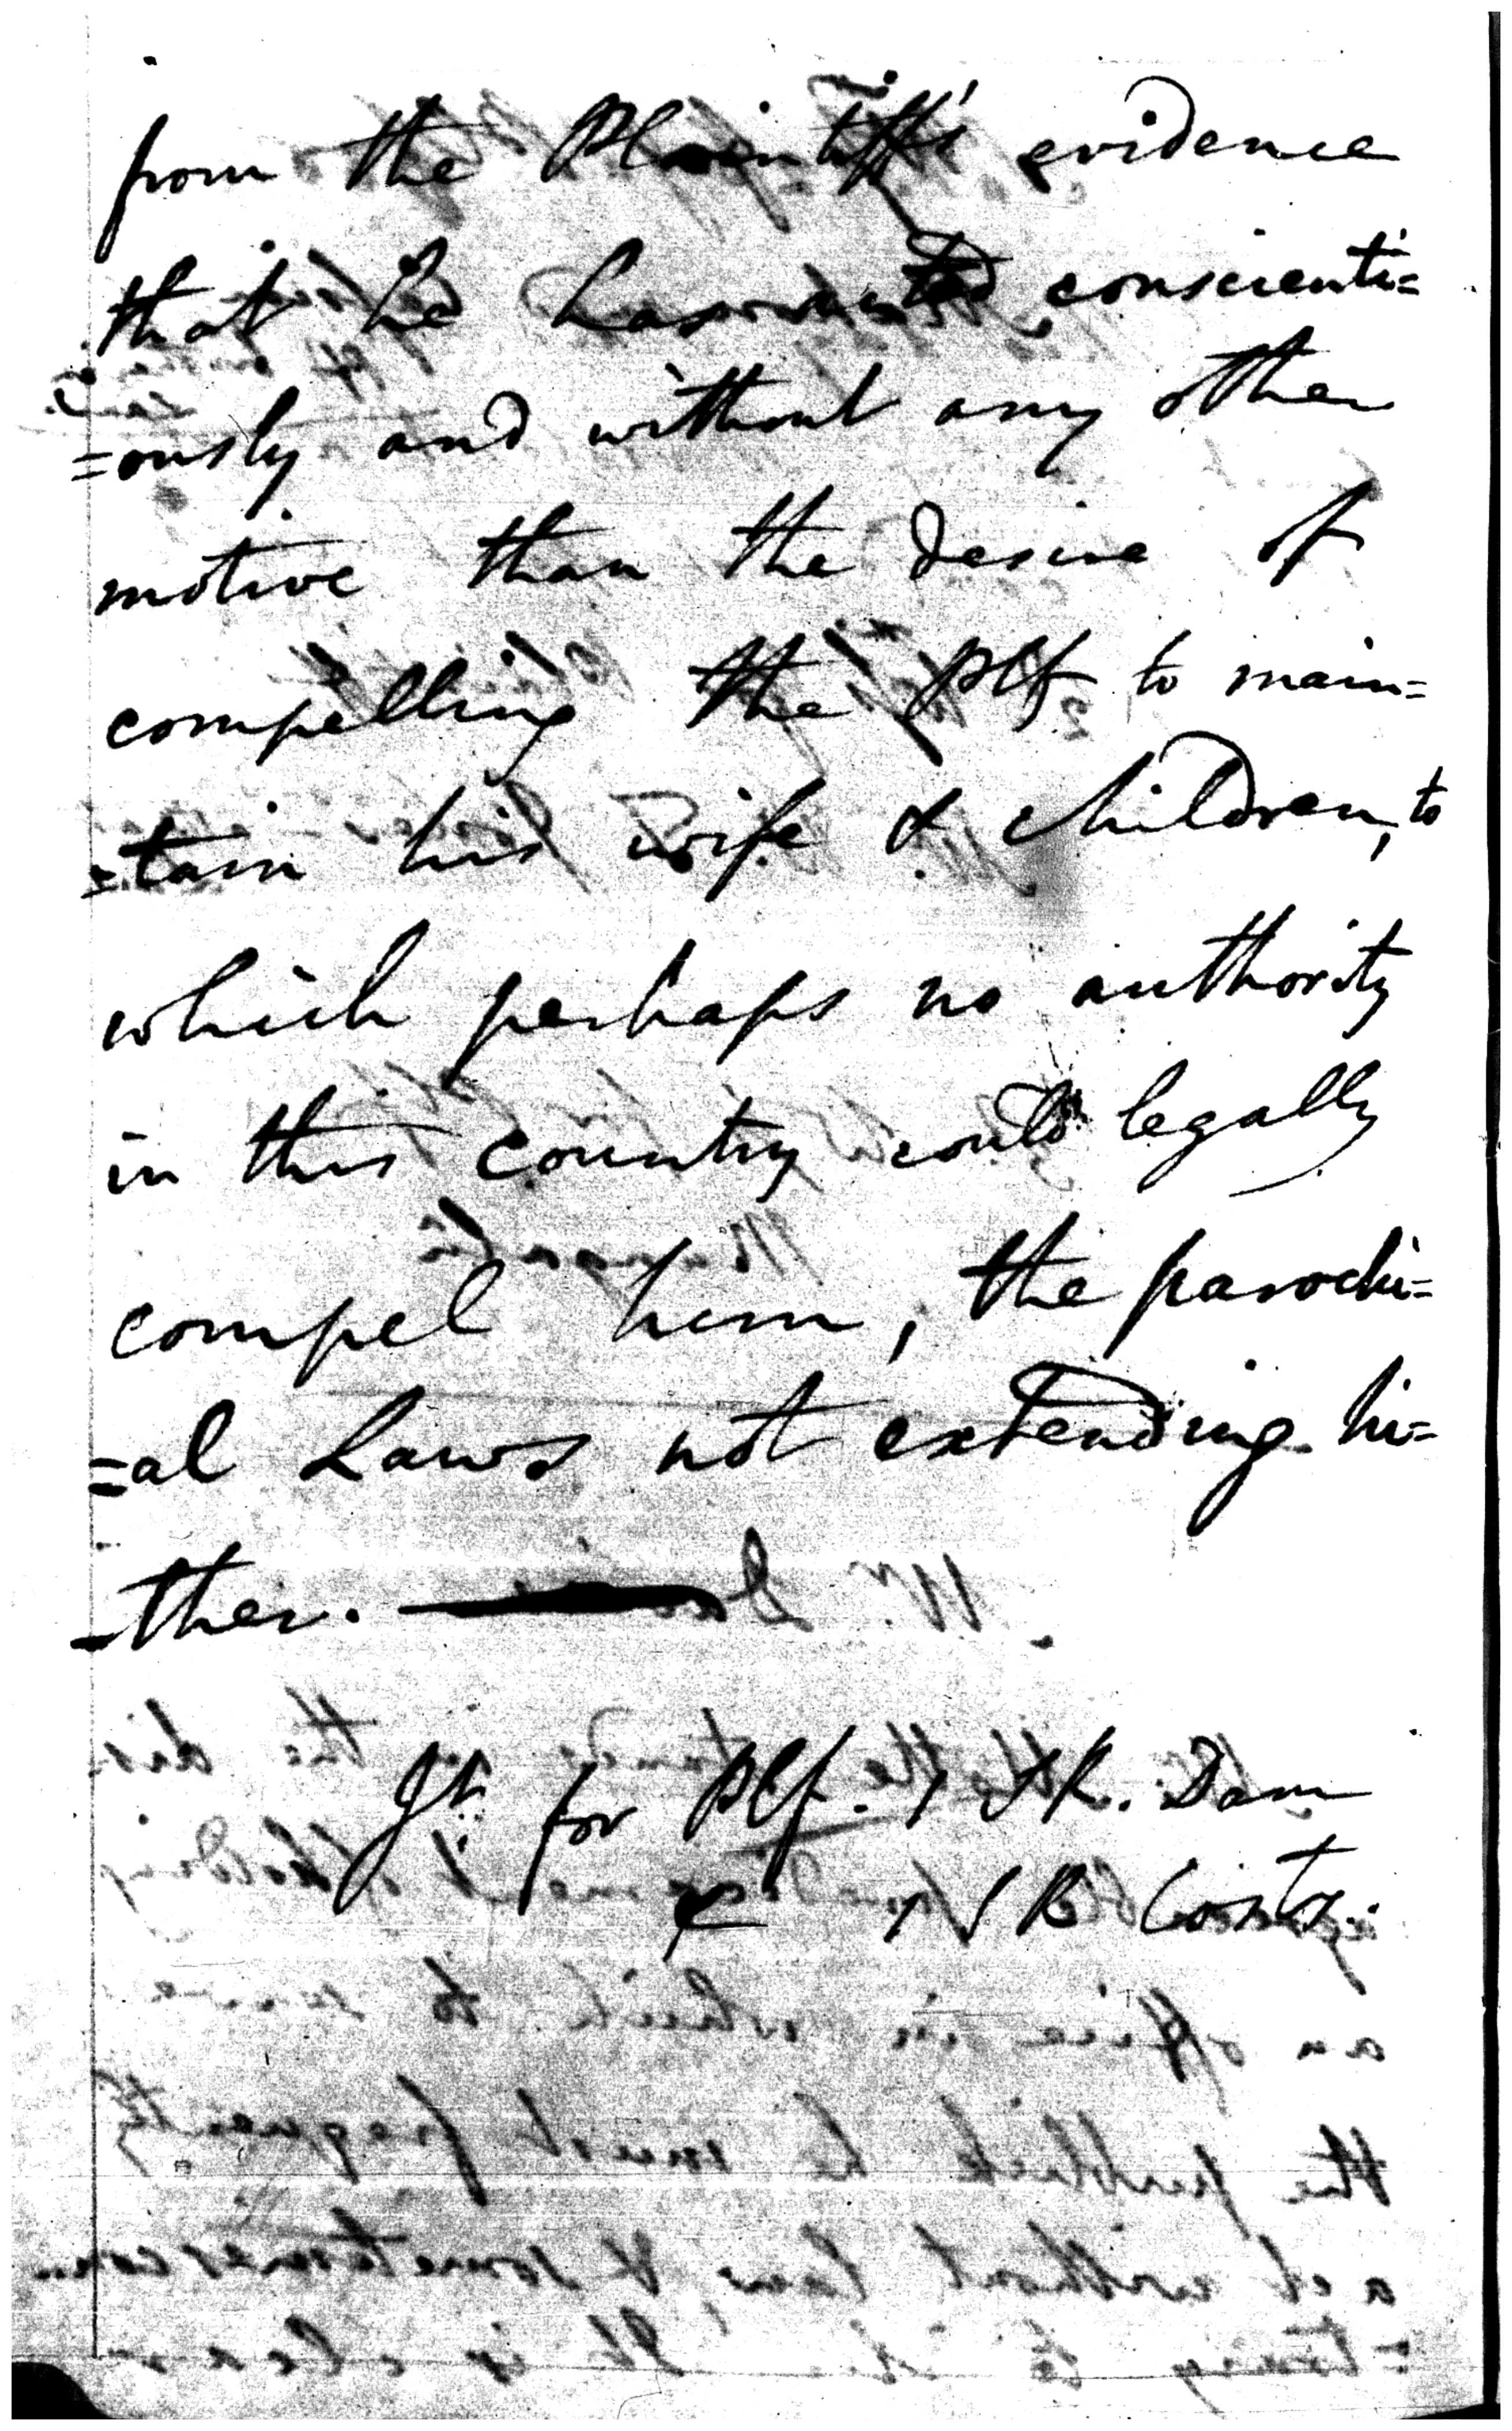 from the Plaintiff's evidence
that he has acted conscienti=
=ously and without any other
motive than the desire of
compelling the Plf to main=
=tain his wife & children, to
which perhaps no authority
in this country could legally
compel him, the parochi=
=al Laws not extending hi=
-ther.
Jt. for Plf. 1 SR. Dam
& 1 SR Costs.